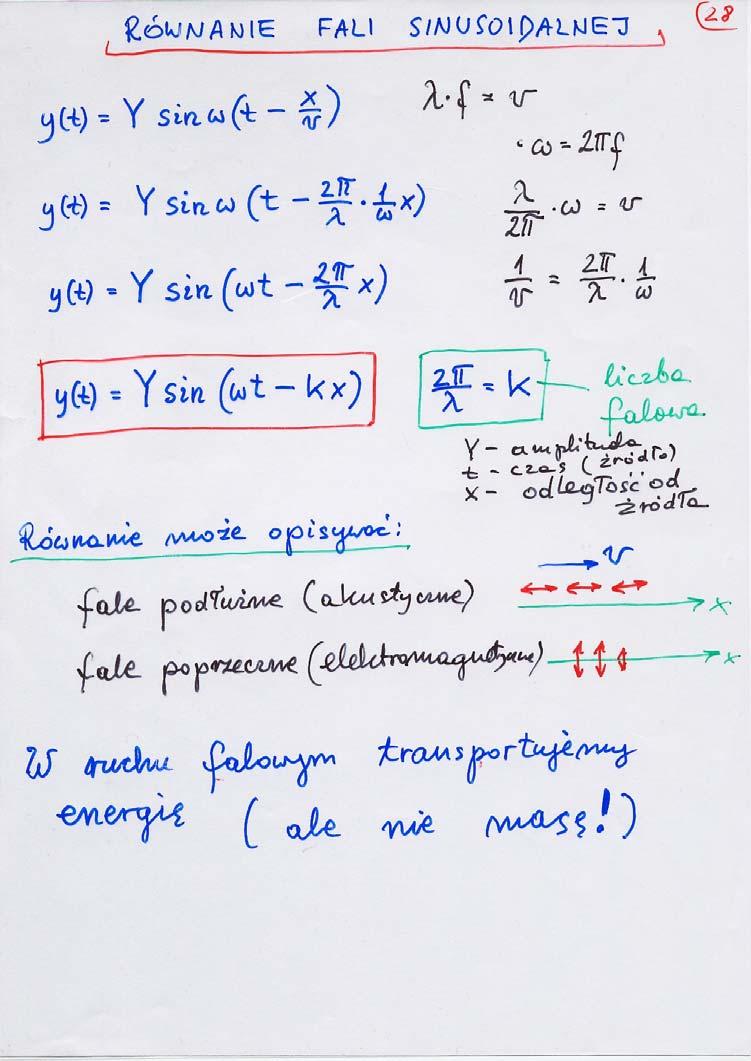 28
RÓWNANIE FALI SINUSOIDALNEJ
y(t) = Y sin ω(t − x/v)
λ·f = v
· ω = 2πf
y(t) = Y sin ω (t − 2π/λ · 1/ω x)
λ/2π · ω = v
y(t) = Y sin (ωt − 2π/λ x)
1/v = 2π/λ · 1/ω
y(t) = Y sin (ωt − kx)
2π/λ = k
liczba
falowa
Y – amplituda
t – czas (źródło)
x – odległość od
źródła
Równanie może opisywać:
v
fale podłużne (akustyczne)
x
fale poprzeczne (elektromagnetyczne)
x
W ruchu falowym transportujemy
energię (ale nie masę!)